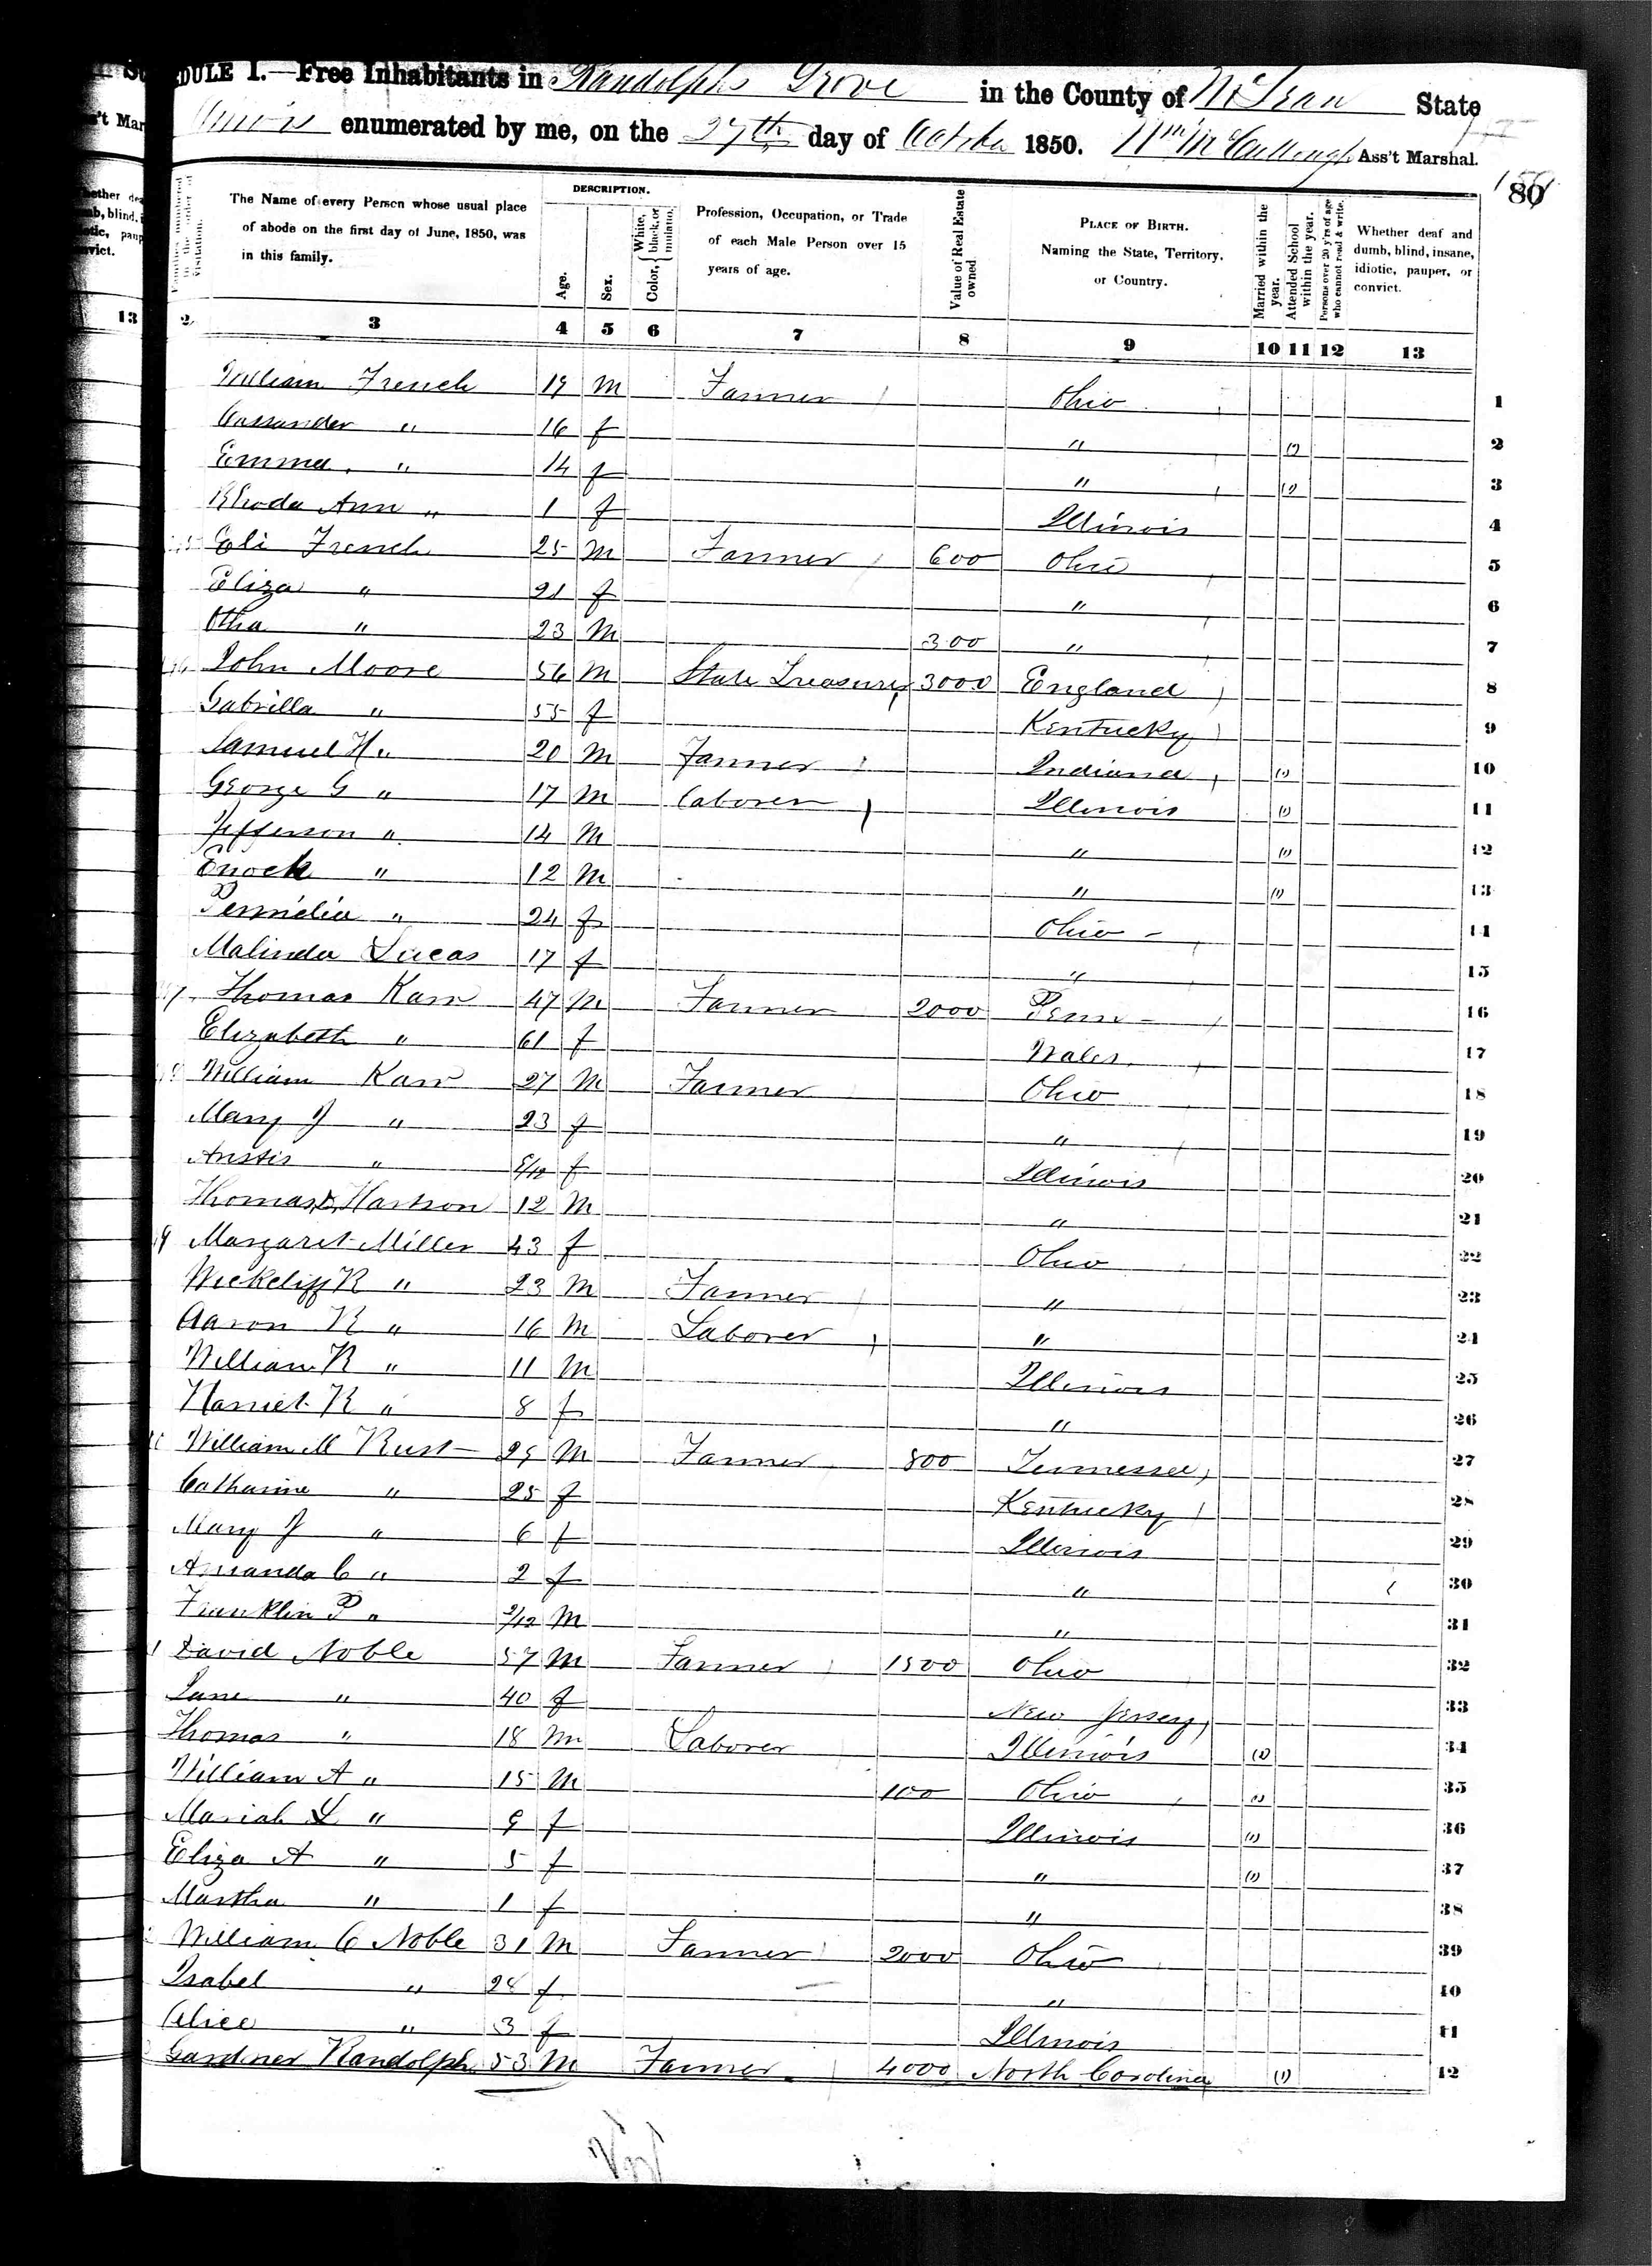 SCHEDULE I.—Free Inhabitants in Randolphs Grove in the County of McLean State
Illinois enumerated by me, on the 27th day of October 1850. Wm McCullough Ass't Marshal.
80
The Name of every Person whose usual place of abode on the first day of June, 1850, was in this family.
DESCRIPTION.
Age.
Sex.
Color, { White, black, or mulatto.
Profession, Occupation, or Trade of each Male Person over 15 years of age.
Value of Real Estate owned.
PLACE OF BIRTH. Naming the State, Territory, or Country.
Married within the year.
Attended School within the year.
Persons over 20 y'rs of age who cannot read & write.
Whether deaf and dumb, blind, insane, idiotic, pauper, or convict.
2 3 4 5 6 7 8 9 10 11 12 13
William French 19 M Farmer Ohio 1
Cassander " 16 f " (1) 2
Emma " 14 f " (1) 3
Rhoda Ann " 1 f Illinois 4
Eli French 25 M Farmer 600 Ohio 5
Eliza " 21 f " 6
Otha " 23 M 300 " 7
John Moore 56 M State Treasurer 3000 England 8
Gabrilla " 55 f Kentucky 9
Samuel H " 20 M Farmer Indiana (1) 10
George G " 17 M Laborer Illinois (1) 11
Jefferson " 14 M " (1) 12
Enock " 12 M " (1) 13
Permelia " 24 f Ohio 14
Malinda Lucas 17 f " 15
Thomas Karr 47 M Farmer 2000 Penn 16
Elizabeth " 61 f Wales 17
William Karr 27 M Farmer Ohio 18
Mary J " 23 f " 19
Anstis " /12 f Illinois 20
Thomas Harrison 12 M " 21
Margaret Miller 43 f Ohio 22
Wickcliff K " 23 M Farmer " 23
Aaron K " 16 M Laborer " 24
William K " 11 M Illinois 25
Harriet K " 8 f " 26
William M Rust 29 M Farmer 800 Tennessee 27
Catharine " 25 f Kentucky 28
Mary J " 6 f Illinois 29
Amanda C " 2 f " 30
Franklin P " /12 M " 31
David Noble 57 M Farmer 1500 Ohio 32
Jane " 40 f New Jersey 33
Thomas " 18 M Laborer Illinois (1) 34
William A " 15 M 100 Ohio (1) 35
Mariah L " 9 f Illinois (1) 36
Eliza A " 5 f " (1) 37
Martha " 1 f " 38
William C Noble 31 M Farmer 2000 Ohio 39
Isabel " 28 f " 40
Alice " 3 f Illinois 41
Gardner Randolph 53 M Farmer 4000 North Carolina (1) 42